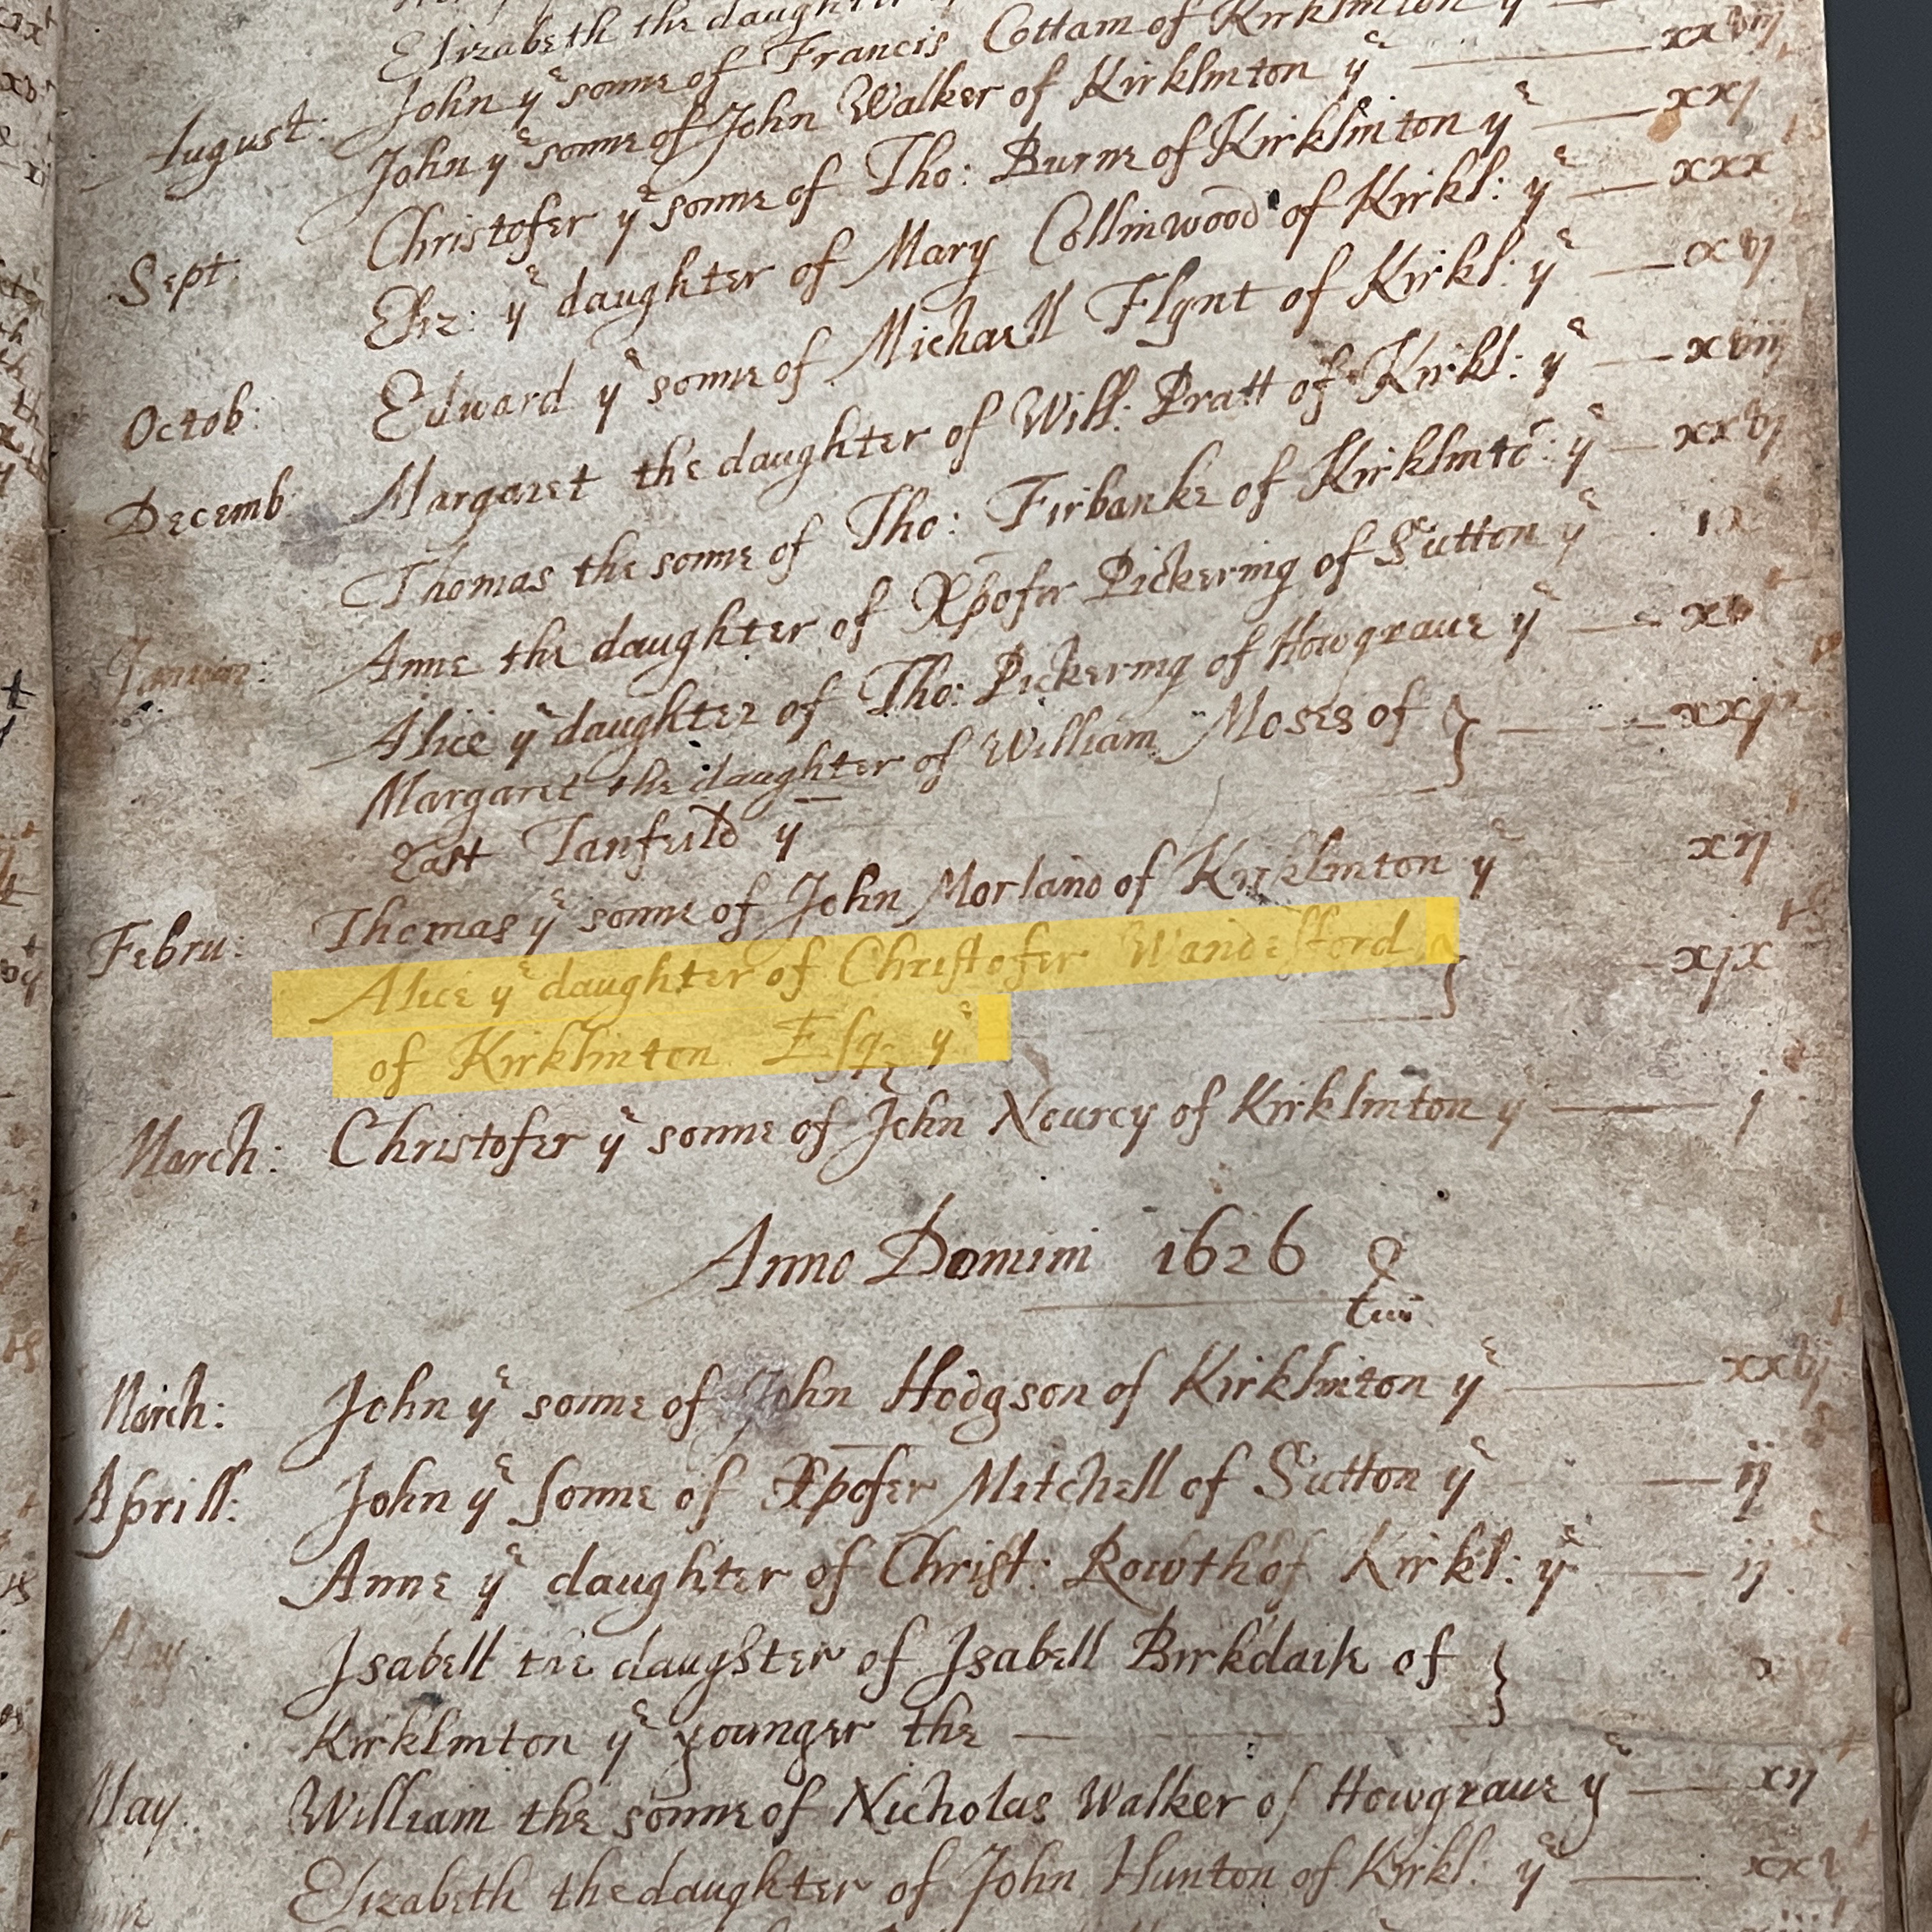 Elizabeth the daughter
John yᵉ sonne of Francis Cottam of Kirklinton yᵉ xxviij
August: John yᵉ sonne of John Walker of Kirklinton yᵉ xxj
Christofer yᵉ sonne of Tho: Burne of Kirklinton yᵉ xxx
Sept: Eliz: yᵉ daughter of Mary Collinwood of Kirkl: yᵉ xvj
Edward yᵉ sonne of Michaell Flynt of Kirkl: yᵉ xviij
Octob: Margaret the daughter of Will: Pratt of Kirkl: yᵉ xxvj
Decemb Thomas the sonne of Tho: Firbanke of Kirklintō: yᵉ ix
Anne the daughter of Xpofer Pickering of Sutton yᵉ xv
Alice yᵉ daughter of Tho: Pickering of Howgraue yᵉ
Margaret the daughter of William Moses of } xxij
East Tanfeild yᵉ
Febru: Thomas yᵉ sonne of John Morland of Kirklinton yᵉ xij
Alice yᵉ daughter of Christofer Wandesford } xix
of Kirklinton Esqꝫ yᵉ
March: Christofer yᵉ sonne of John Nourcy of Kirklinton y j
Anno Domini 1626
March: John yᵉ sonne of John Hodgson of Kirklinton yᵉ xxvj
Aprill: John yᵉ sonne of Xpofer Metchell of Sutton yᵉ ij
Anne yᵉ daughter of Christ: Rowth of Kirkl: yᵉ ij
May Isabell the daughter of Isabell Birkdaile of } x
Kirklinton yᵉ younger the
May. William the sonne of Nicholas Walker of Howgraue yᵉ xij
Elizabeth the daughter of John Hunton of Kirkl: yᵉ